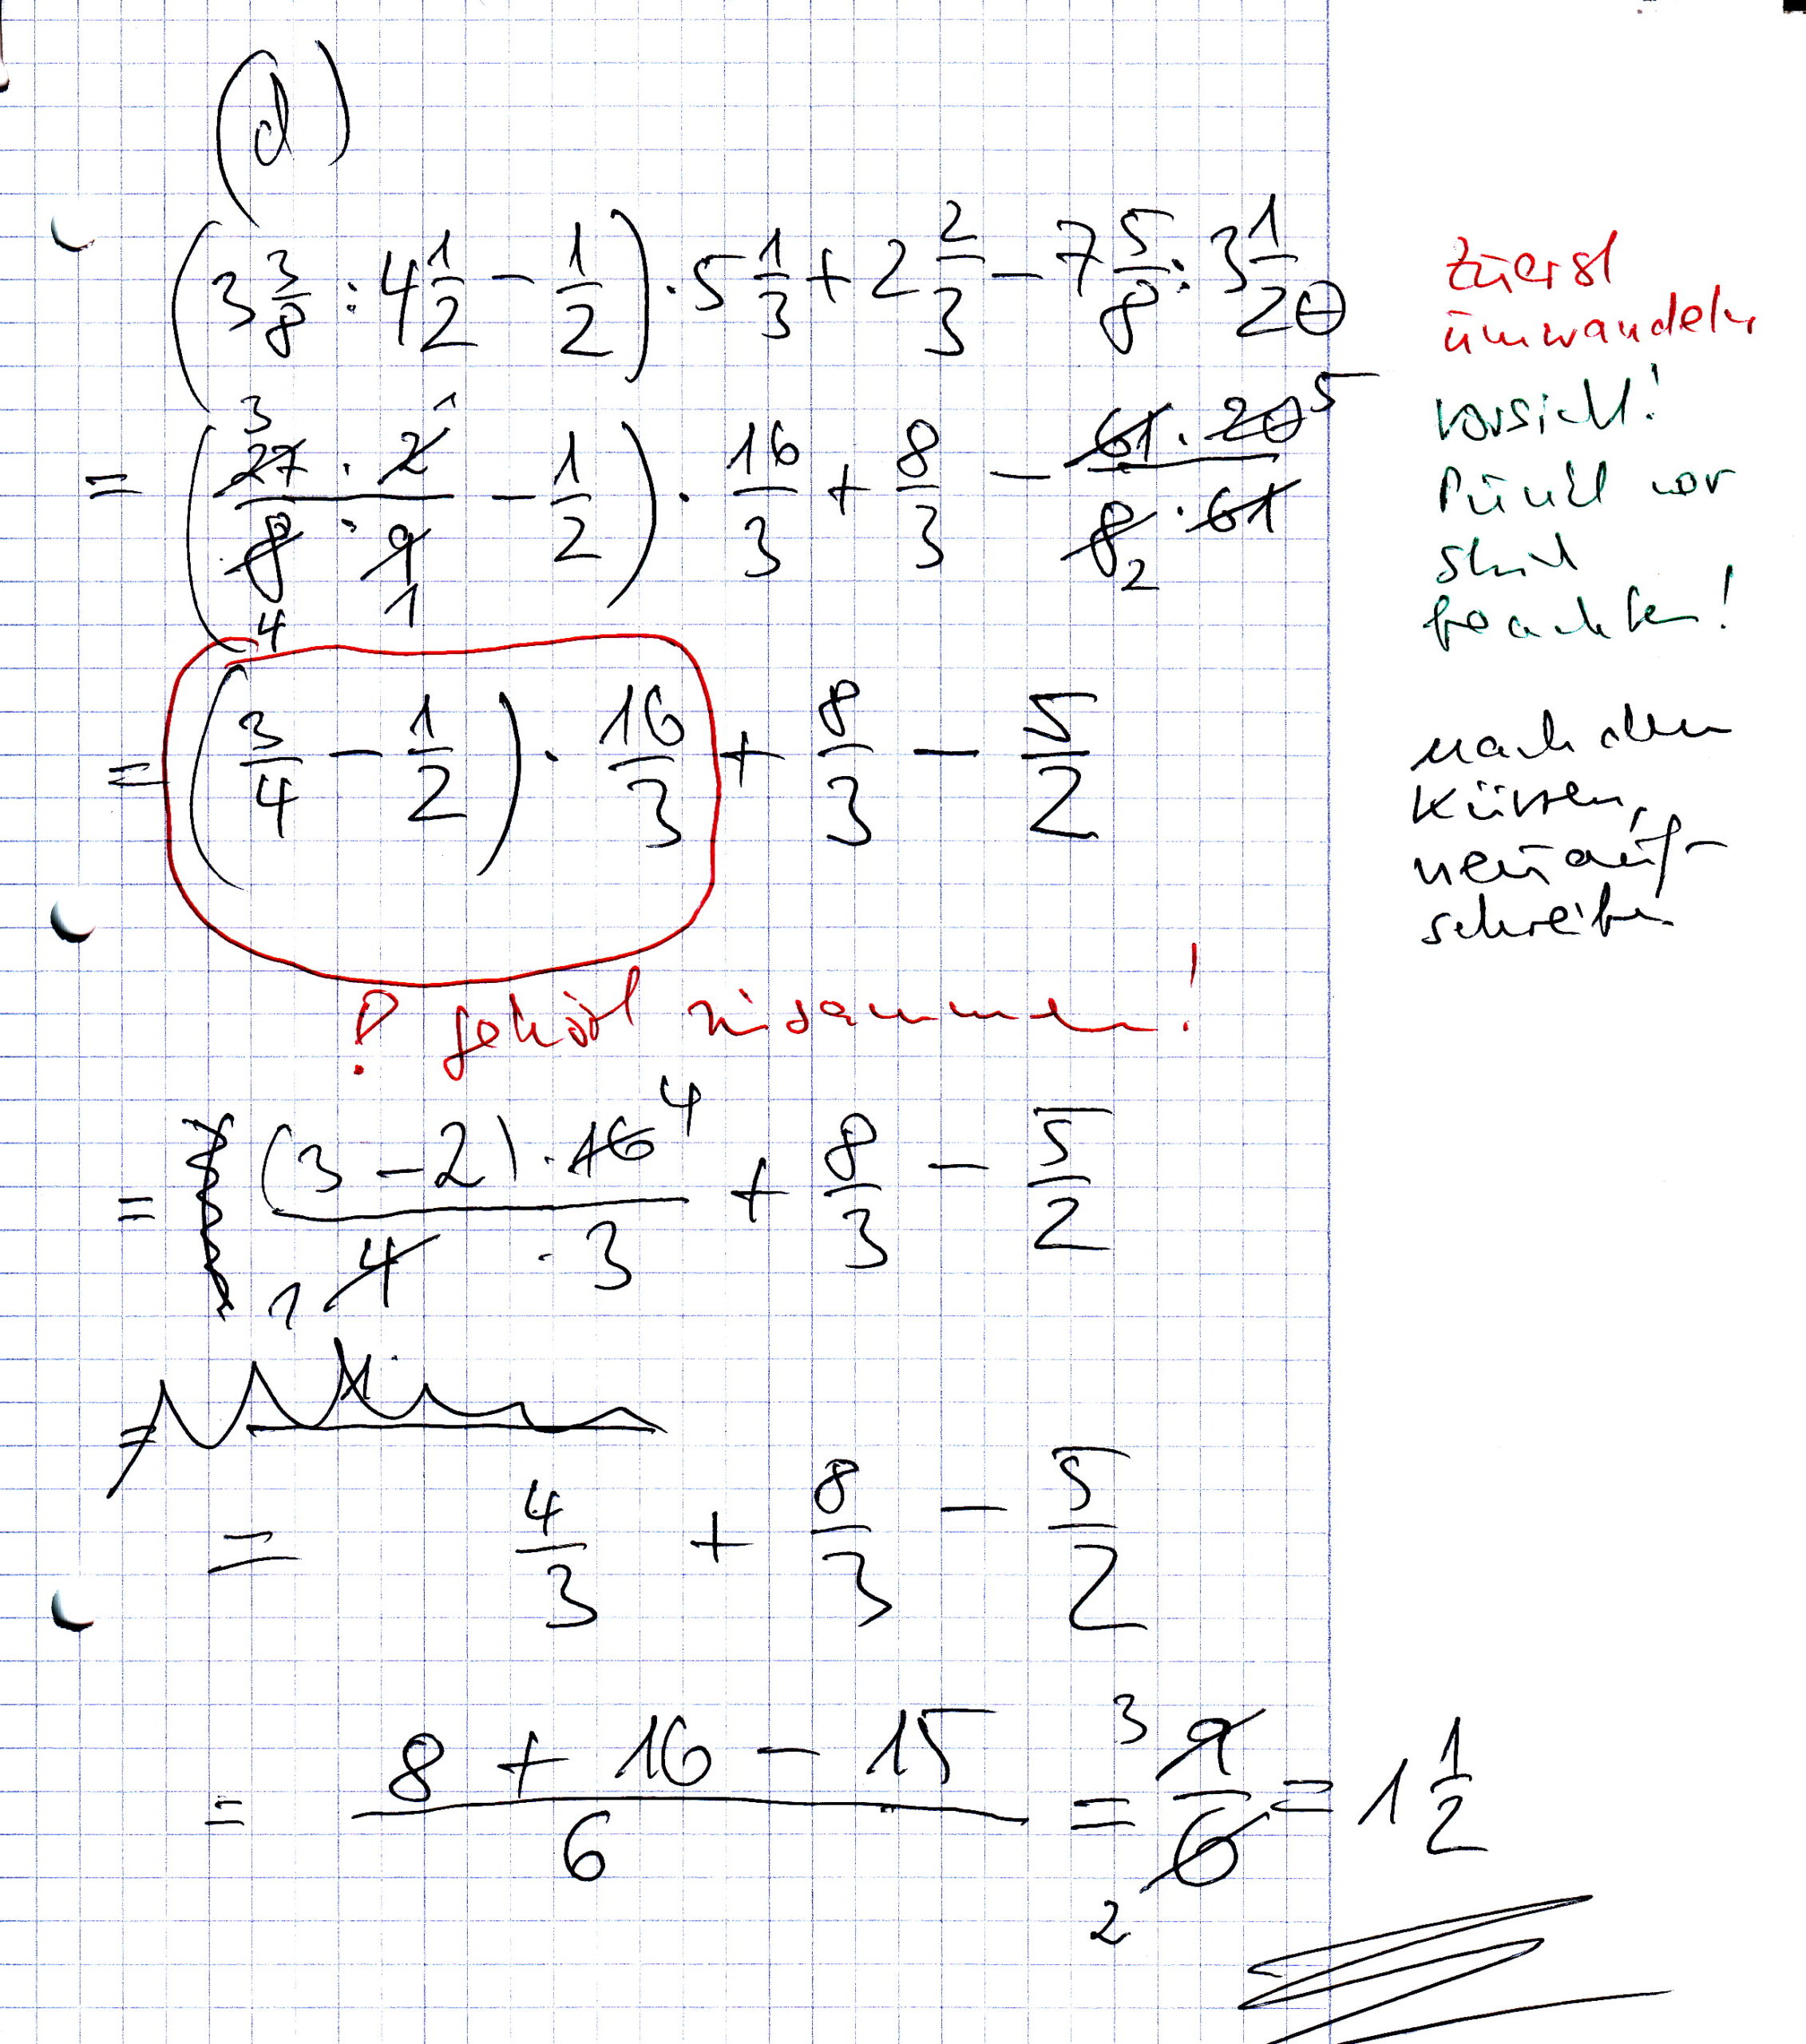 (d)
(3 3/8 : 4 1/2 − 1/2) · 5 1/3 + 2 2/3 − 7 5/8 : 3 1/20
zuerst
umwandeln
= (27 · 2 / 8 · 9 − 1/2) · 16/3 + 8/3 − 61 · 20 / 8 · 61
3 1 5
4 1 2
Vorsicht!
Punkt vor
Strich
beachten!
= (3/4 − 1/2) · 16/3 + 8/3 − 5/2
nach dem
Kürzen,
neu auf-
schreiben
? gehört zusammen!
= (3 − 2) · 16 / 4 · 3 + 8/3 − 5/2
4
1
=
= 4/3 + 8/3 − 5/2
= 8 + 16 − 15 / 6 = 9/6 = 1 1/2
3
2